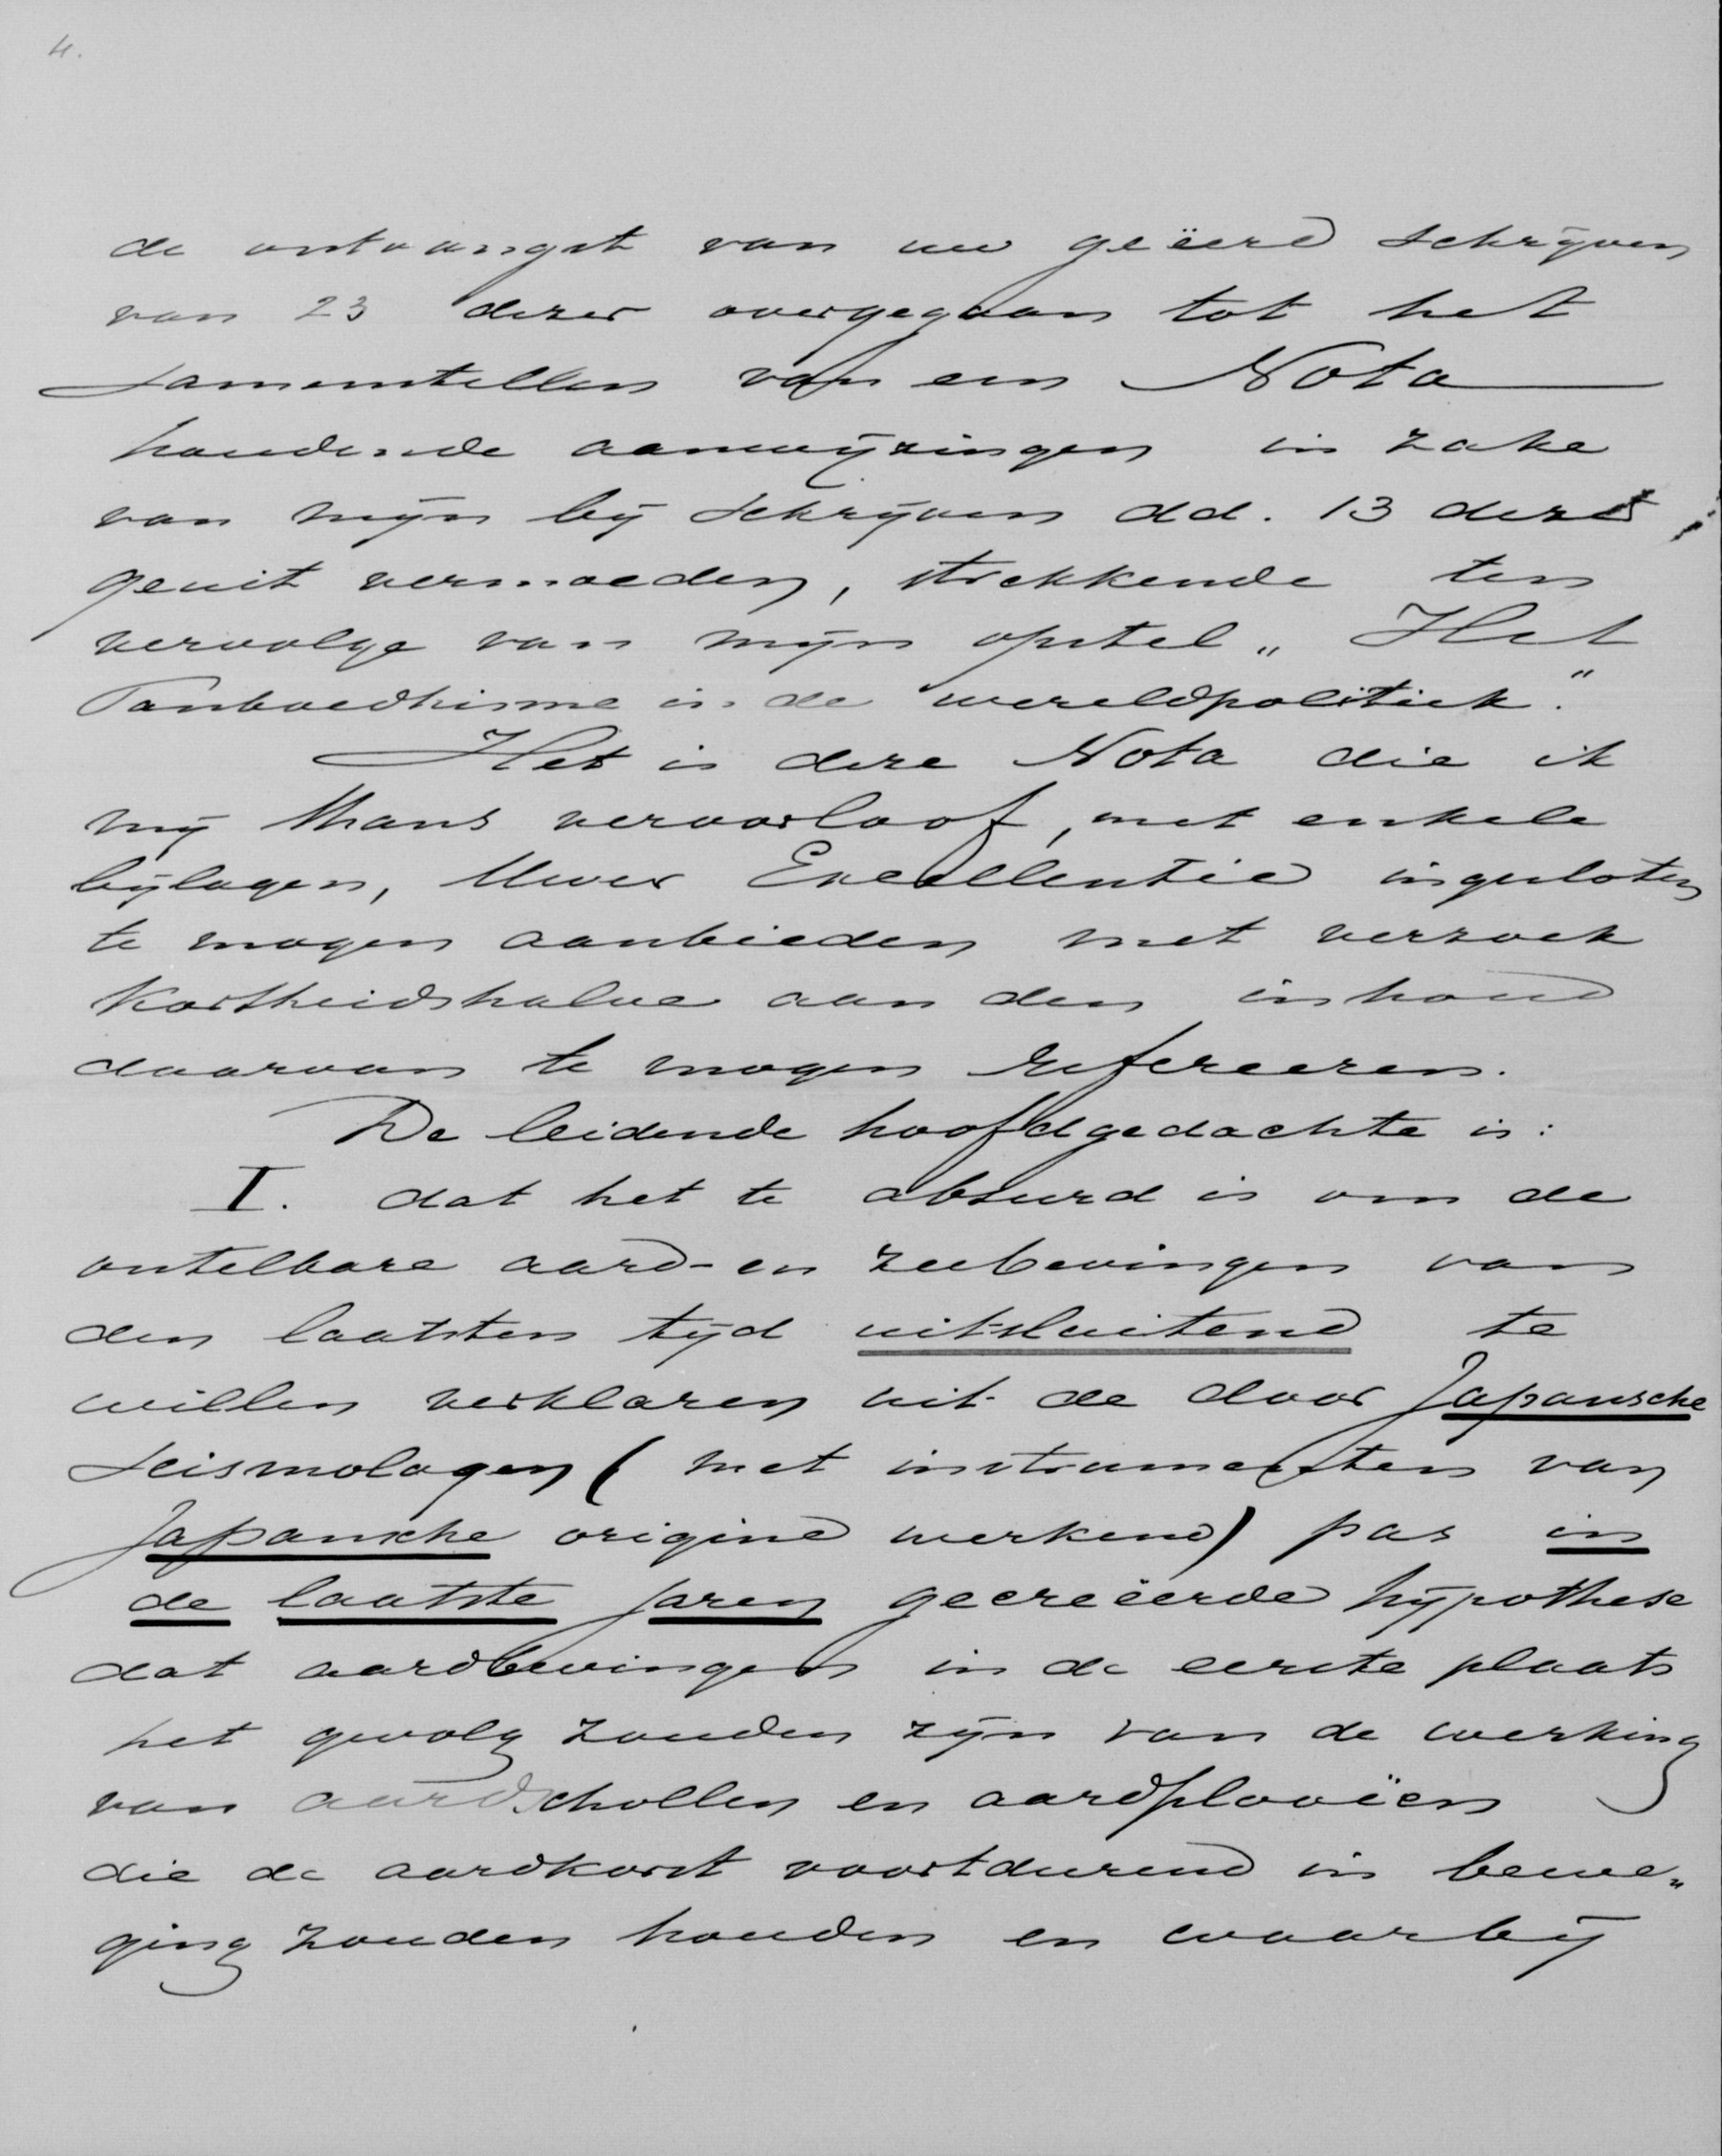 4.
de ontvangst van uw geëerd schrijven
van 23 dezer overgegaan tot het
samenstellen van een Nota
houdende aanwijzingen in zake
van mijn bij schrijven dd. 13 dezer
geuit vermoeden, strekkende ten
vervolge van mijn opstel „Het
Panboedhisme in de wereldpolitiek."
Het is deze Nota die ik
mij thans veroorloof, met enkele
bijlagen, Uwer Excellentie ingesloten
te mogen aanbieden met verzoek
kortheidshalve aan den inhoud
daarvan te mogen refereeren.
De leidende hoofdgedachte is:
I. dat het te absurd is om de
ontelbare aard- en zeebevingen van
den laatsten tijd uitsluitend te
willen verklaren uit de door Japansche
seismologen (met instrumenten van
Japansche origine werkend) pas in
de laatste jaren gecreëerde hypothese
dat aardbevingen in de eerste plaats
het gevolg zouden zijn van de werking
van aardschollen en aardplooiën
die de aardkorst voortdurend in bewe„
ging zouden houden en waarbij